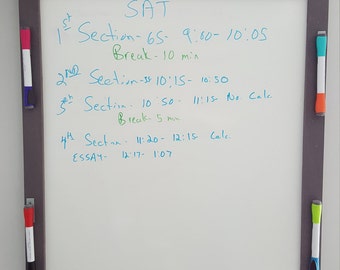 SAT
1st Section - 65 - 9:00 - 10:05
Break - 10 min
2nd Section - 10:15 - 10:50
3th Section - 10:50 - 11:15 No Calc
Break - 5 min
4th Section - 11:20 - 12:15 Calc
ESSAY - 12:17 - 1:07